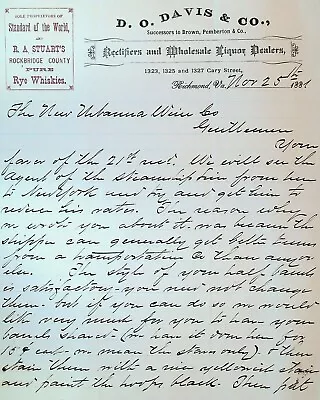 SOLE PROPRIETORS OF
Standard of the World,
R. A. STUART'S
ROCKBRIDGE COUNTY
PURE
Rye Whiskies.
D. O. DAVIS & CO.,
Successors to Brown, Pemberton & Co.,
Rectifiers and Wholesale Liquor Dealers,
1323, 1325 and 1327 Cary Street,
Richmond, Va. Nov 25th 188
The New Urbanna Wine Co
Gentlemen
Your
favor of the 21st rec. We will see the
Agent of the steamship from here
to New York and try and get him to
reduce his rates. The reason why
we wrote you about it was because the
shipper can generally get better terms
from a transportation Co than any one
else. The style of your half barrels
is satisfactory – you need not change
them. but if you can do so we would
like very much for you to have your
barrels shaved (we have it done here for
15¢ each – we mean the staves only) & then
stain them with a nice yellowish stain
and paint the hoops black. Then put